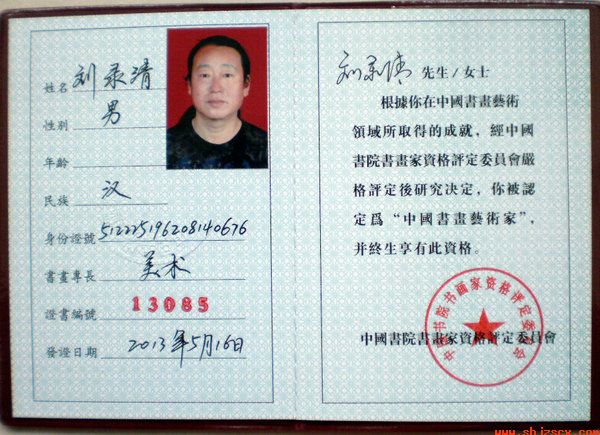 姓名 刘录清
性别 男
年齡
民族 汉
身份證號 512225196208140676
書畫專長 美术
證書編號 13085
發證日期 2013年5月16日
刘录清 先生/女士
根據你在中國書畫藝術
領域所取得的成就，經中國
書院書畫家資格評定委員會嚴
格評定後研究决定，你被認
定爲“中國書畫藝術家”，
并終生享有此資格。
中国书院书画家资格评定委员会
中國書院書畫家資格評定委員會
www.shizscx.com